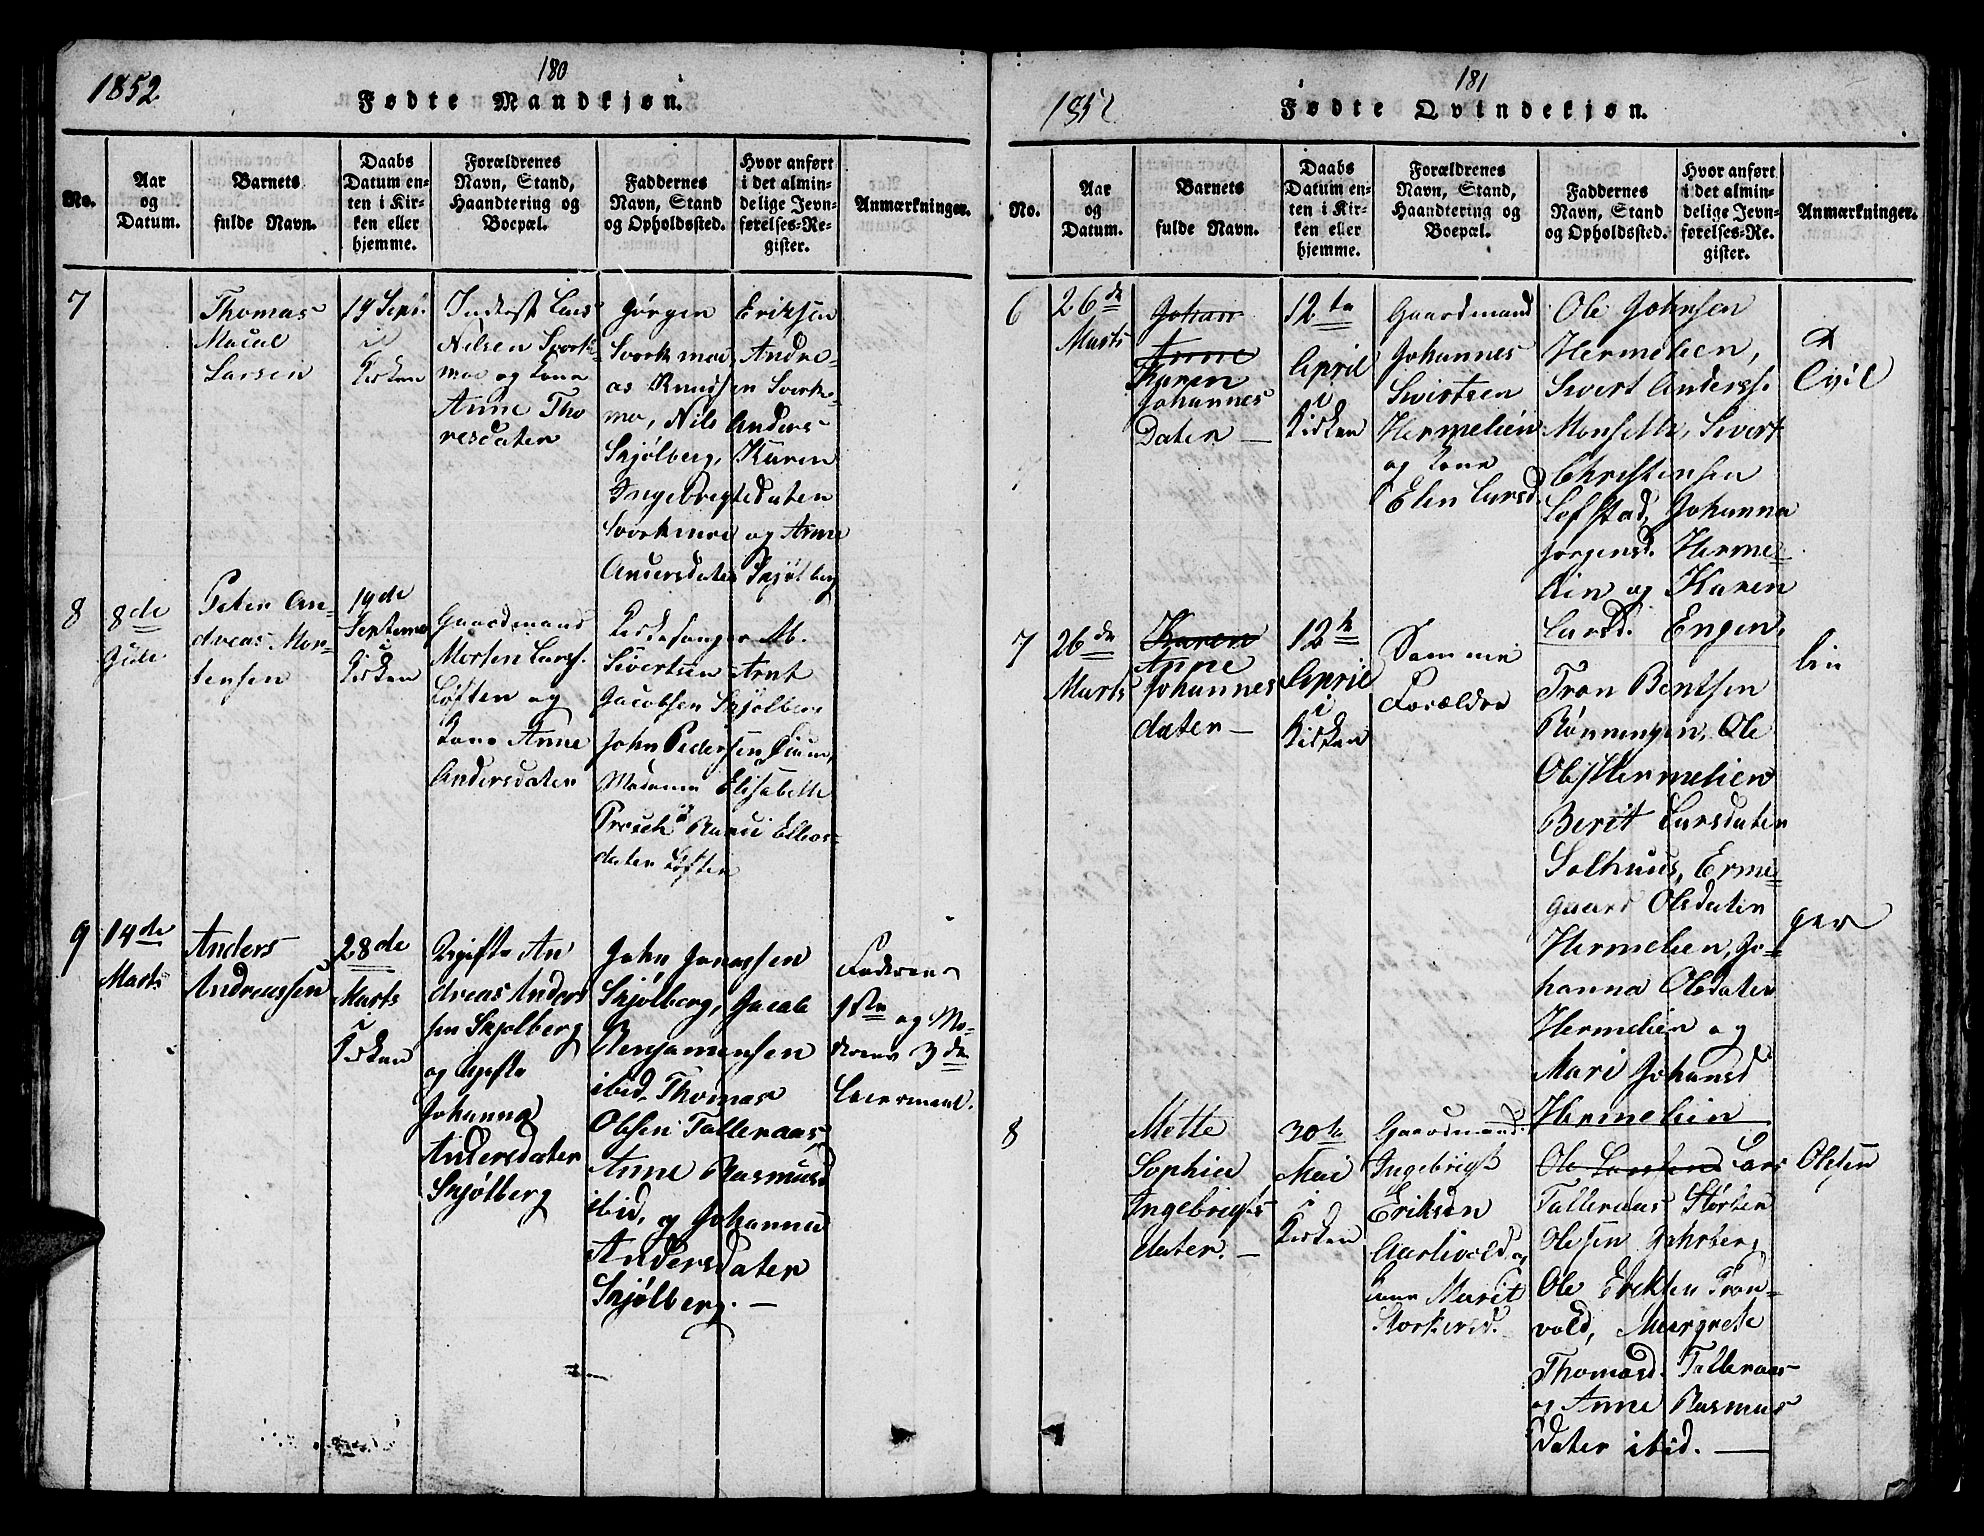 1852
180
Fødte Mandkjøn.
No.
Aar
og
Datum.
Barnets
fulde Navn.
Daabs
Datum en-
ten i Kir-
ken eller
hjemme.
Forældrenes
Navn, Stand,
Haandtering og
Boepæl.
Faddernes
Navn, Stand
og Opholdssted.
Hvor anført
i det almin-
delige Jevn-
førelses-Re-
gister.
Anmærkninger.
7
Thomas
Larsen
19 Sept.
i
Kirken
Inderst Lars
Nilsen Svork-
moe og Kone
Anne Tho
resdater
Jørgen Eriksen
Svorkmoe, Andre-
as Knudsen Svork-
moe, Nils Anders
Skjølberg, Karen
Ingebregtsdater
Svorkmoe og Anne
Andersdater Skjølberg
8
8de
Peter An-
dreas Mor-
tensen
19de
Septembr
i
Kirken
Gaardmand
Morten Larss.
Løften og
Kone Anne
Andersdater
Kirkesanger M.
Sivertsen Arnt
Jacobsen Skjølberg
John Pedersen
Madame Elisabeth
dater Løften
9
14de
Marts
Anders
Andreassen
28de
Marts
i
Kirken
Ugifte An
dreas Anders
sen Skjølberg
og ugifte
Johanna
Andersdater
Skjølberg
John Jonassen
Skjølberg, Jacob
Benjaminsen
ibid, Thomas
Olsen Talleraas,
Anne Rasmusd
ibid, og Johanna
Andersdater
Skjølberg. —
Faderens
1ste og Mo-
derens 3de
Leiermaal.
1852
181
Fødte Qvindekjøn.
No.
Aar
og
Datum.
Barnets
fulde Navn.
Daabs
Datum en-
ten i Kir-
ken eller
hjemme.
Forældrenes
Navn, Stand,
Haandtering og
Boepæl.
Faddernes
Navn, Stand
og Opholdssted.
Hvor anført
i det almin-
delige Jevn-
førelses-Re-
gister.
Anmærkninger.
6
26de
Marts
Johan
Anne
Karen
Johannes
Dater —
12te
April
i
Kirken
Gaardmand
Johannes
Sivertsen
Hermelien
og Kone
Elen Larsd.
Ole Johnsen
Hermelien,
Sivert Anderss.
Monseth, Sivert
Christensen
Lefstad, Johanna
Jørgensd. Herme-
lien og Karen
Larsd. Engen.
7
26de
Marts
Karen
Anne
Johannes
dater —
12te
April
i
Kirken
Samme
Forældre
Tron Bentsen
Rønningen, Ole
Ols. Hermelien
Berit Larsdater
Solhuus, Erme-
gaard Olsdater
Hermelien, Jo-
hanna Olsdater
Hermelien og
Mari Johansd
Hermelien
lin
ger
8
Mette
Sophie
Ingebrigts
dater. —
30te
Mai
i
Kirken
Gaardmand
Ingebrigt
Eriksen
Aarlivold og
Kone Marit
Storkersd.
Ole Larsen Lars Olsen
Talleraas Størker
Olesen
Ole Eriksen Tron-
vold, Margrete
Thomasd. Talleraas
og Anne Rasmus
dater ibid. —